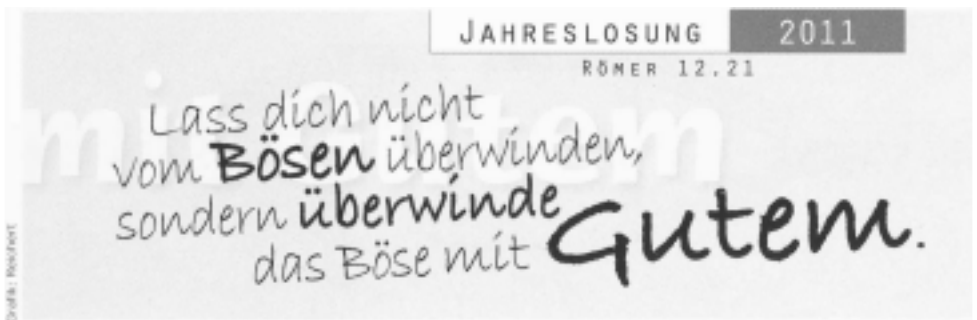 JAHRESLOSUNG 2011
RÖMER 12,21
mit Gutem
Lass dich nicht
vom Bösen überwinden,
sondern überwinde
das Böse mit Gutem.
Grafik: Reichert